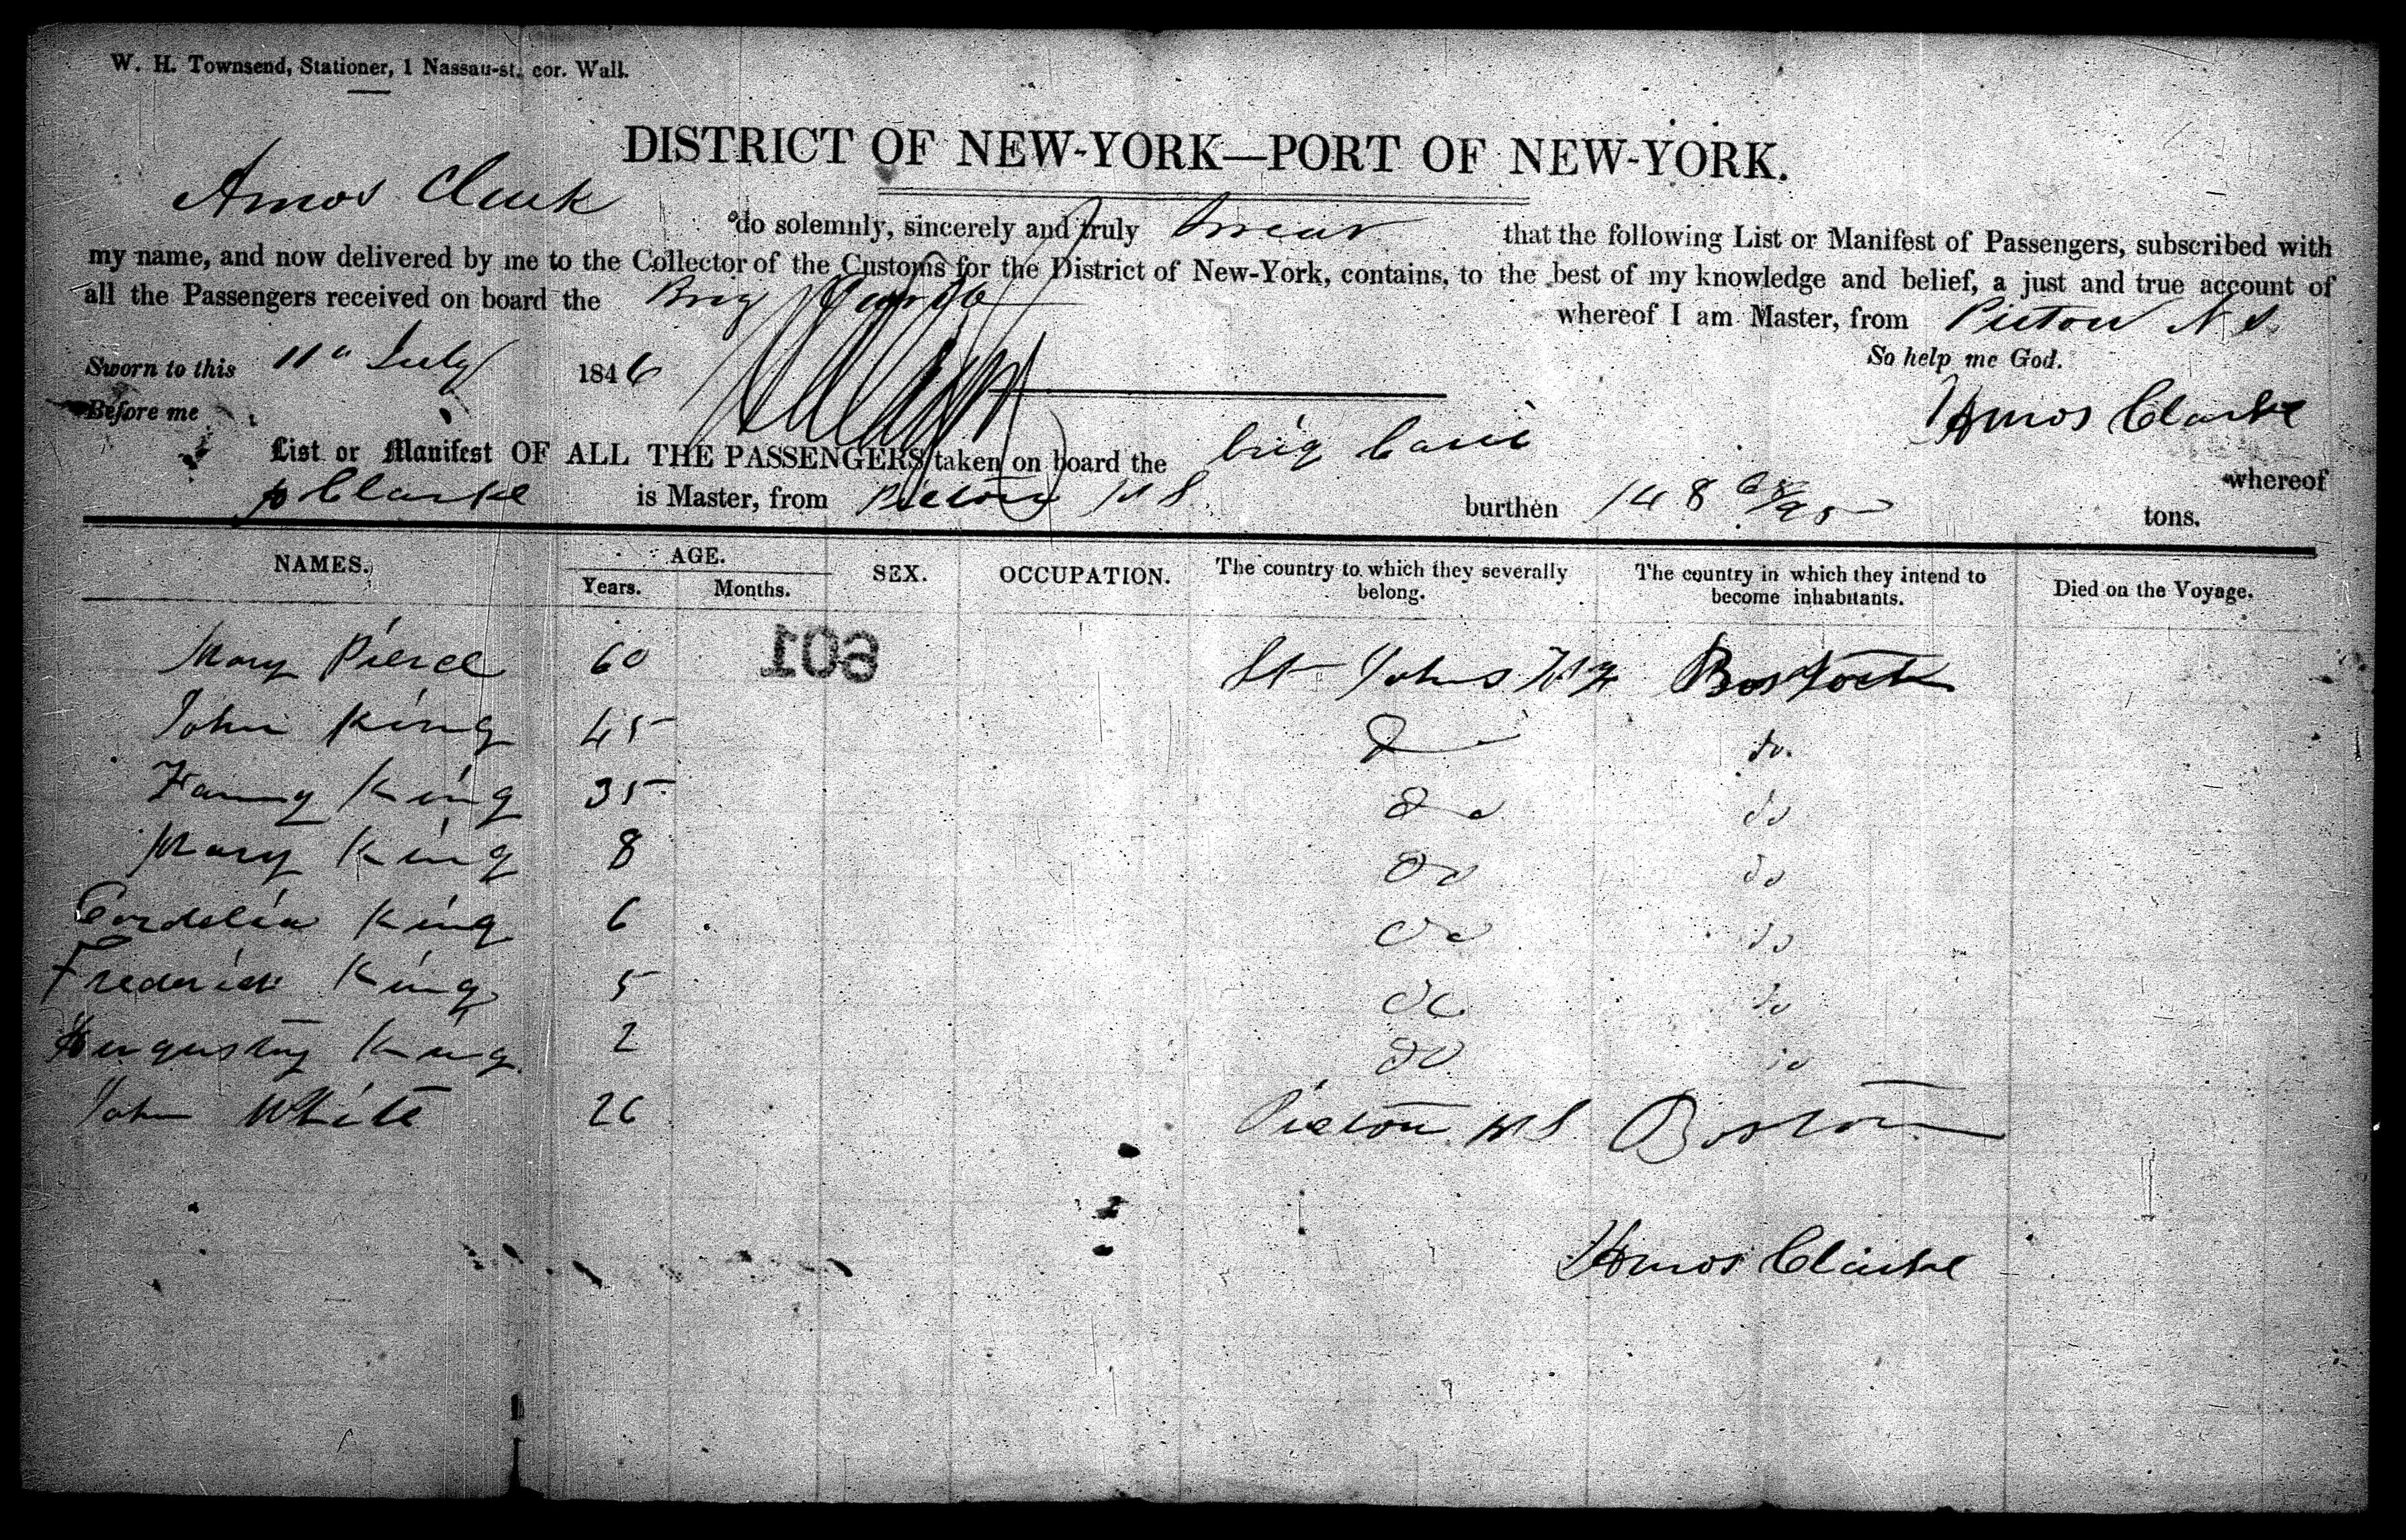 W. H. Townsend, Stationer, 1 Nassau-st. cor. Wall.
DISTRICT OF NEW-YORK—PORT OF NEW-YORK.
Amos Clark do solemnly, sincerely and truly swear that the following List or Manifest of Passengers, subscribed with
my name, and now delivered by me to the Collector of the Customs for the District of New-York, contains, to the best of my knowledge and belief, a just and true account of
all the Passengers received on board the Brig whereof I am Master, from Pictou N S
So help me God.
Sworn to this 11" July 1846
Amos Clarke
Before me
List or Manifest OF ALL THE PASSENGERS taken on board the brig whereof
Clarke is Master, from Pictou N S burthen 148 68/95 tons.
NAMES. AGE. SEX. OCCUPATION. The country to which they severally belong. The country in which they intend to become inhabitants. Died on the Voyage.
Years. Months.
601
Mary Pierce 60 St Johns
John King 45 do.
Fanny King 35 do do
Mary King 8 do do
Cordelia King 6 do do
Frederick King 5 do do
King 2 do do
John White 26 Pictou N S Boston
Amos Clarke